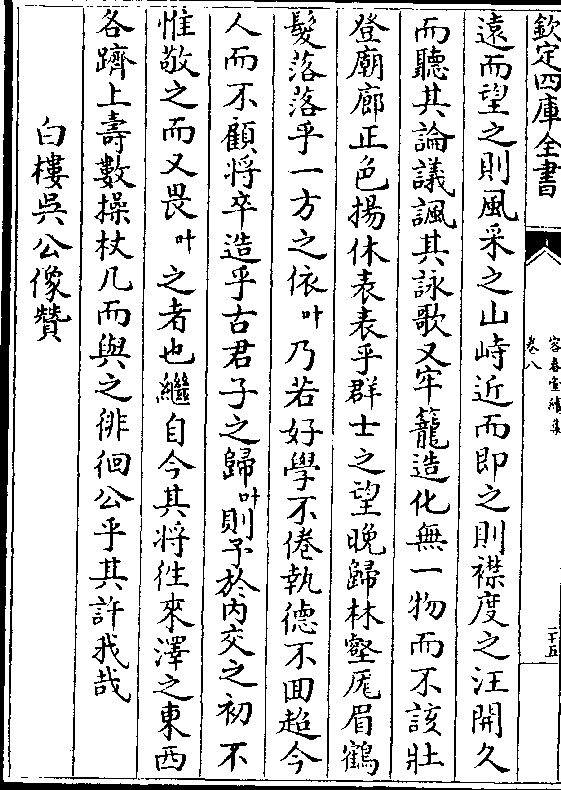 欽定四庫全書
容春堂續集
卷八
二十五
遠而望之則風采之山峙近而即之則襟度之汪開久
而聽其論議諷其詠歌又牢籠造化無一物而不該壯
登廟廊正色揚休表表乎群士之望晚歸林壑厖眉鶴
髮落落乎一方之依叶乃若好學不倦執德不回超今
人而不顧將卒造乎古君子之歸叶則予於内交之初不
惟敬之而又畏叶之者也繼自今其將徃來澤之東西
各躋上壽數操杖几而與之徘徊公乎其許我哉
白樓吳公像贊